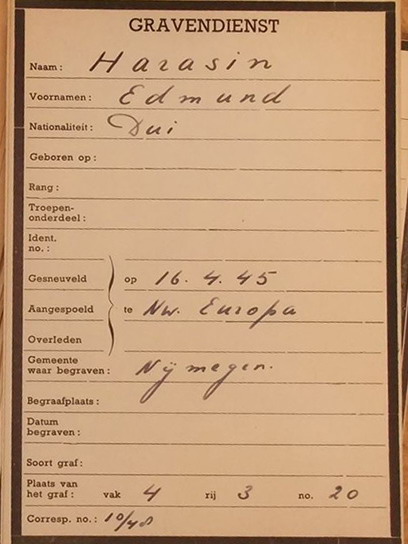 GRAVENDIENST
Naam: Harasin
Voornamen: Edmund
Nationaliteit: Dui
Geboren op:
Rang:
Troepen-
onderdeel:
Ident.
no.:
Gesneuveld op 16.4.45
Aangespoeld te Nw. Europa
Overleden
Gemeente
waar begraven: Nijmegen.
Begraafplaats:
Datum
begraven:
Soort graf:
Plaats van
het graf: vak 4 rij 3 no. 20
Corresp. no.: 10/48